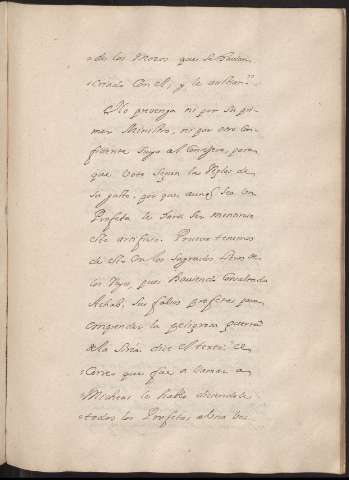 de los Mozos que se havian
criado con el, y le adulan.
No prevenga ni por su pri-
mer Ministro, ni por otro con-
fidente suyo al Consejero, para
que vote segun las Reglas de
su gusto, por que aunq. sea un
Profeta le hará ser mentiroso
este artificio. Prueva tenemos
de ello en los sagrados libros de
los Reyes, pues haviendo consultado
Achab, sus falsos profetas para
emprender la peligrosa guerra
de la Siria, dice el texto: el
Correo que fue a llamar a
Micheas le habló diciendole
todos los Profetas a una voz